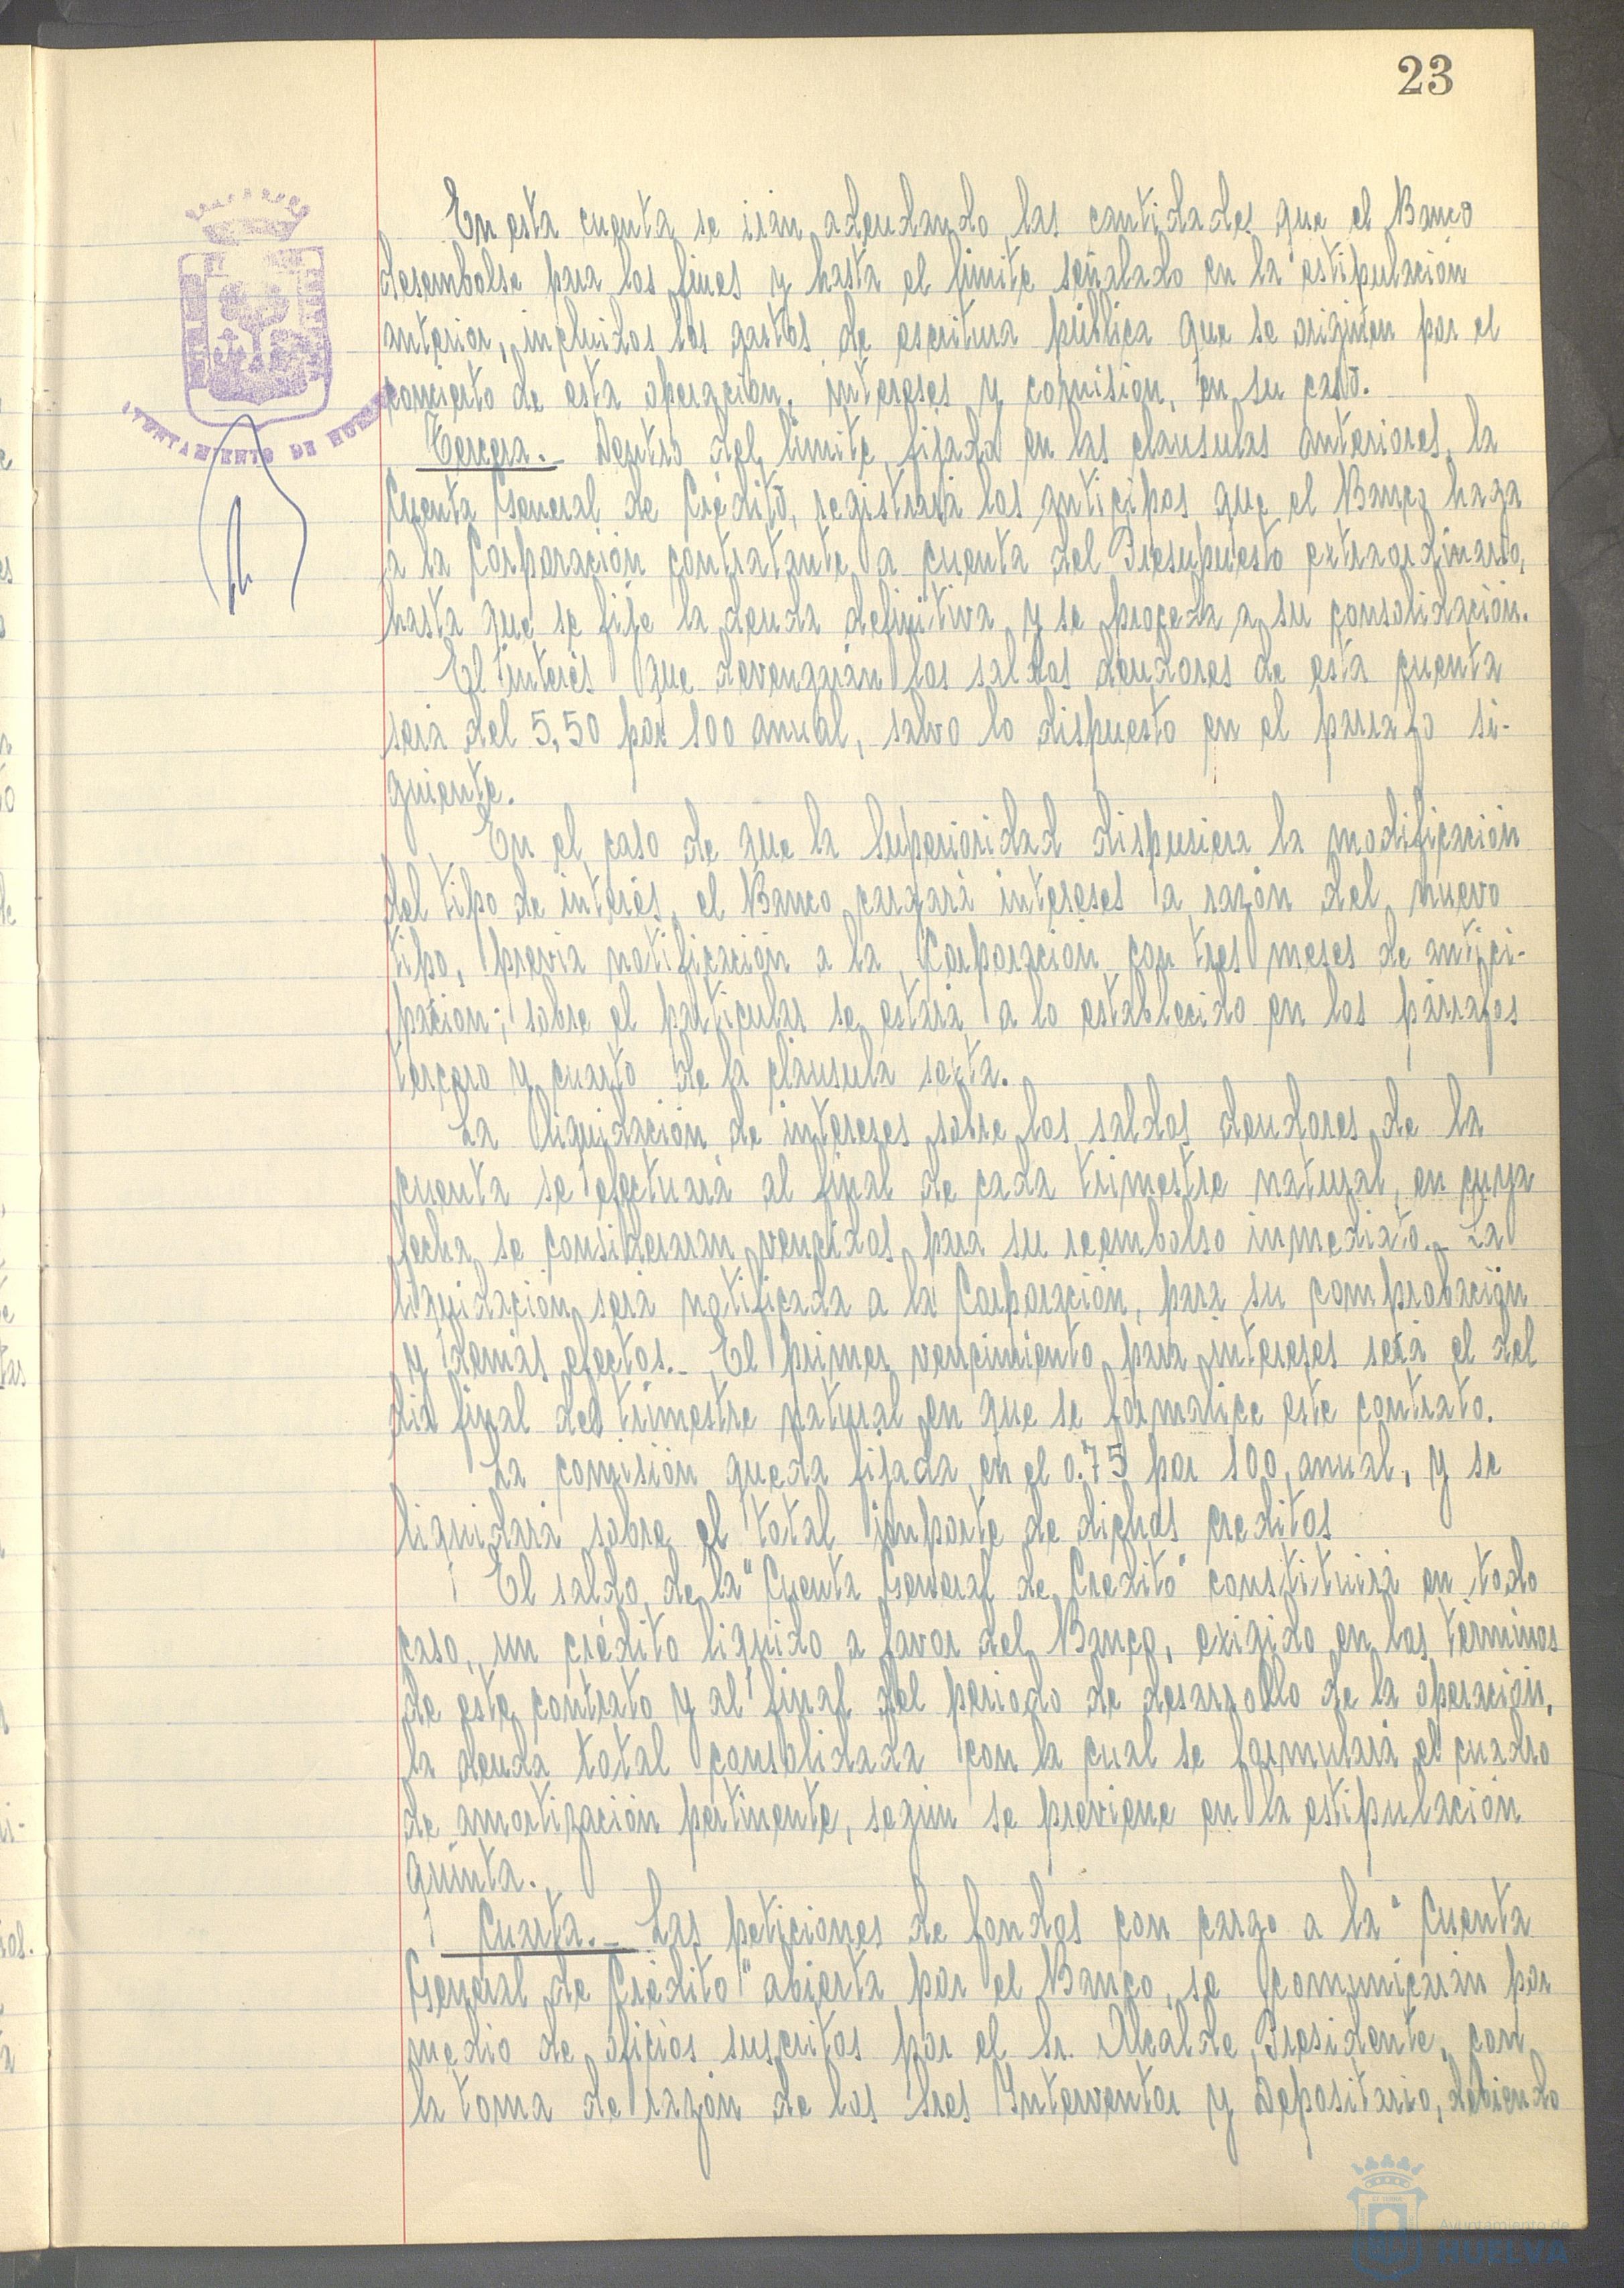 23
En esta cuenta se irán adeudando las cantidades que el Banco
desembolse para los fines y hasta el límite señalado en la estipulación
anterior, incluidos los gastos de escritura pública que se originen por el
concierto de esta operación, intereses y comisión, en su caso.
AYUNTAMIENTO DE HUELVA
Tercera.- Dentro del límite fijado en las cláusulas anteriores, la
Cuenta General de Crédito, registrará los anticipos que el Banco haga
a la Corporación contratante a cuenta del Presupuesto extraordinario,
hasta que se fije la deuda definitiva y se proceda a su consolidación.
El interés que devengarán los saldos deudores de esta cuenta
será del 5,50 por 100 anual, salvo lo dispuesto en el párrafo si-
guiente.
En el caso de que la Superioridad dispusiera la modificación
del tipo de interés, el Banco cargará intereses a razón del nuevo
tipo, previa notificación a la Corporación con tres meses de antici-
pación; sobre el particular se estará a lo establecido en los párrafos
tercero y cuarto de la cláusula sexta.
La liquidación de intereses sobre los saldos deudores de la
cuenta se efectuará al final de cada trimestre natural, en cuya
fecha se considerarán vencidos para su reembolso inmediato.- La
liquidación será notificada a la Corporación, para su comprobación
y demás efectos.- El primer vencimiento para intereses será el del
día final del trimestre natural en que se formalice este contrato.
La comisión queda fijada en el 0.75 por 100, anual, y se
liquidará sobre el total importe de dichos creditos
El saldo de la "Cuenta General de Credito" constituirá en todo
caso, un crédito liquido a favor del Banco, exigido en los términos
de este contrato y al final del periodo de desarrollo de la operación,
la deuda total consolidada con la cual se formulará el cuadro
de amortización pertinente, según se previene en la estipulación
quinta.
Cuarta.- Las peticiones de fondos con cargo a la "Cuenta
General de Crédito" abierta por el Banco, se comunicarán por
medio de oficios suscritos por el Sr. Alcalde Presidente, con
la toma de razón de los Sres Interventor y Depositario, debiendo
Ayuntamiento de
HUELVA